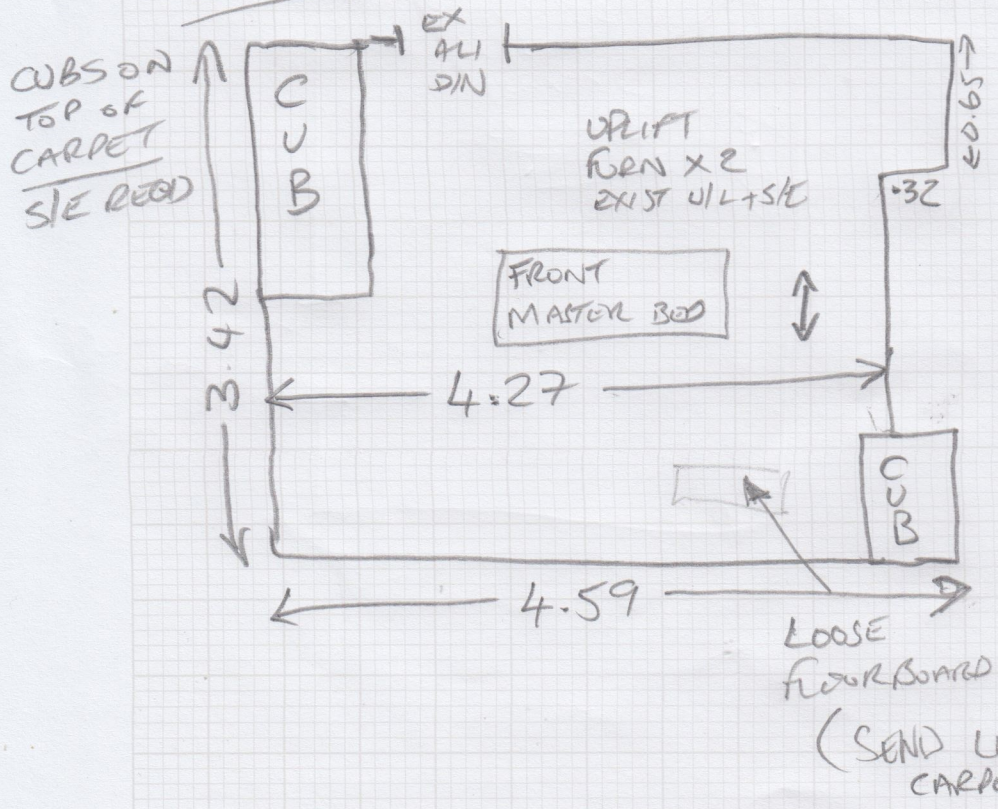 CUBS ON
TOP OF
CARPET
S/E REQD
3.42
C
U
B
EX
ALI
D/N
UPLIFT
FURN X 2
EXIST U/L + S/E
0.65
.32
FRONT
MASTER BED
4.27
C
U
B
4.59
LOOSE
FLOORBOARD
(SEND
CARP